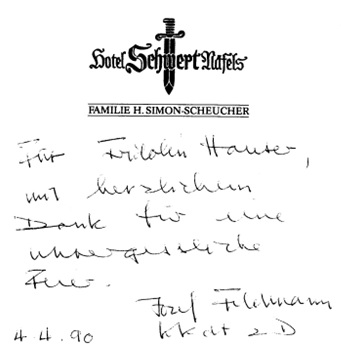 Hotel Schwert Näfels
FAMILIE H. SIMON-SCHEUCHER
Für Fridolin Hauser,
mit herzlichem
Dank für eine
unvergessliche
Feier.
Josef Feldmann
Kkdt z D
4.4.90